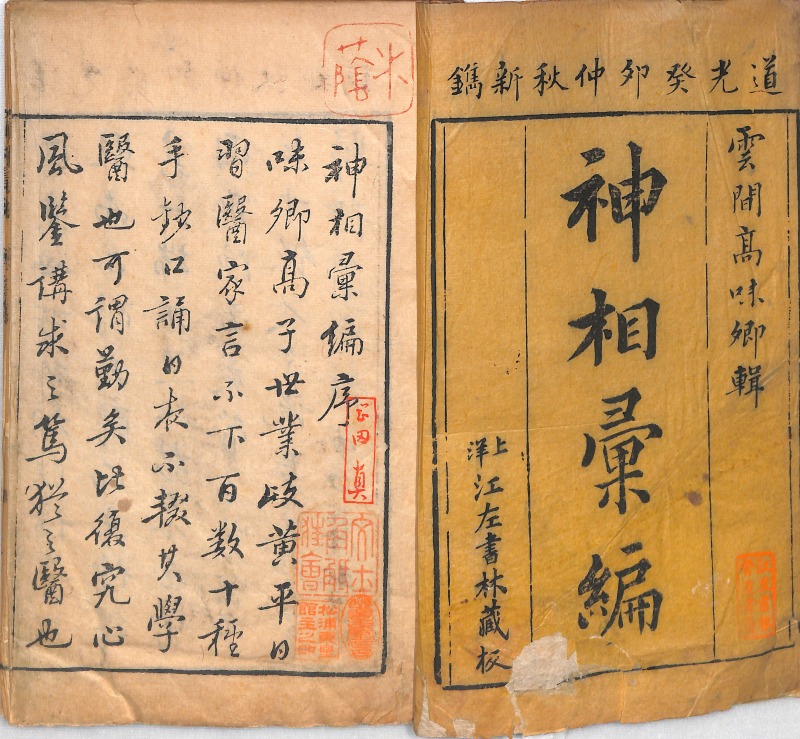 道光癸卯仲秋新鐫
雲間高味卿輯
神相彙編
上洋江左書林藏板
神相彙編序
味卿高子世業歧黃平日
習醫家言不下百數十種
手鈔口誦日夜不輟其學
醫也可謂勤矣比復究心
風鑒講求之篤猶之醫也
岡田真